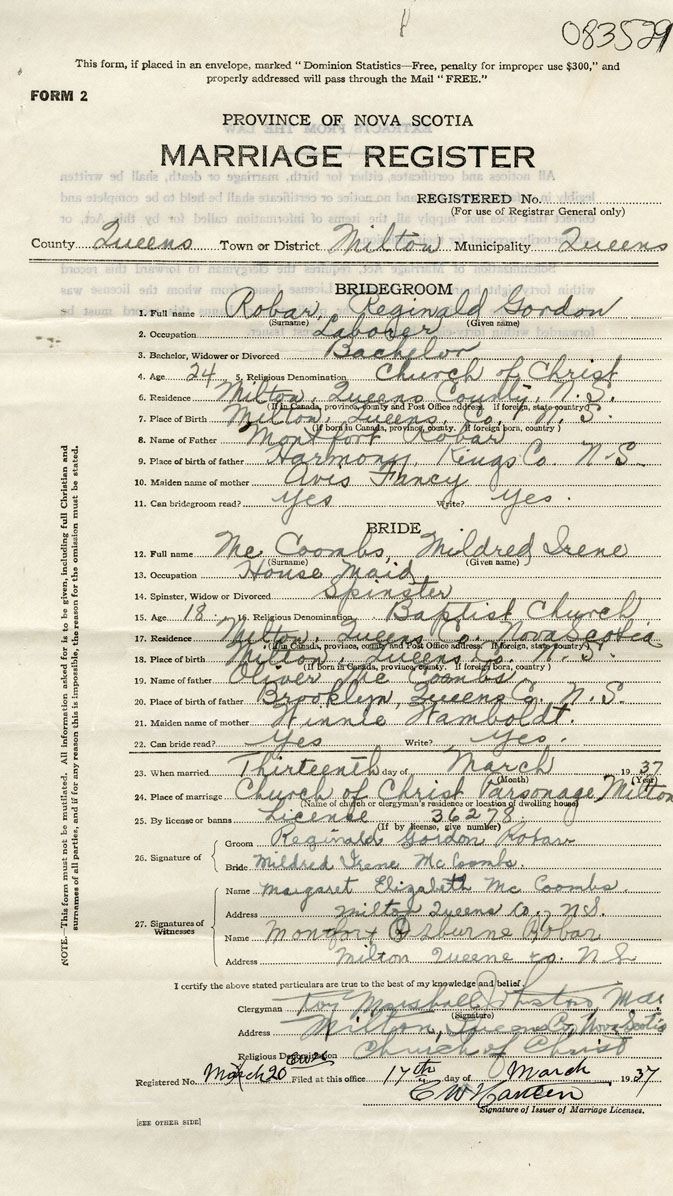 083529
This form, if placed in an envelope, marked "Dominion Statistics—Free, penalty for improper use $300," and
properly addressed will pass through the Mail "FREE."
FORM 2
PROVINCE OF NOVA SCOTIA
MARRIAGE REGISTER
REGISTERED No.
(For use of Registrar General only)
County Queens Town or District Milton Municipality Queens
BRIDEGROOM
1. Full name Robar, Reginald Gordon
(Surname) (Given name)
2. Occupation Laborer
3. Bachelor, Widower or Divorced Bachelor
4. Age 24 5. Religious Denomination Church of Christ
6. Residence Milton, Queens County, N.S.
(If in Canada, province, county and Post Office address. If foreign, state country)
7. Place of Birth Milton, Queens, Co., N.S.
(If born in Canada, province, county. If foreign born, country)
8. Name of Father Montfort Robar
9. Place of birth of father Harmony, Kings Co. N-S.
10. Maiden name of mother Avis Fancy
11. Can bridegroom read? yes Write? Yes.
BRIDE
12. Full name Mc Coombs, Mildred Irene
(Surname) (Given name)
13. Occupation House Maid
14. Spinster, Widow or Divorced Spinster
15. Age 18 16. Religious Denomination Baptist Church
17. Residence Milton, Queens Co. Nova Scotia
(If in Canada, province, county and Post Office address. If foreign, state country)
18. Place of birth Milton Queens Co. N.S.
(If born in Canada, province, county. If foreign born, country)
19. Name of father Oliver Mc Coombs
20. Place of birth of father Brooklyn, Queens Co., N.S.
21. Maiden name of mother Winnie Wamboldt.
22. Can bride read? Yes Write? Yes.
23. When married Thirteenth day of March 1937
(Month) (Year)
24. Place of marriage Church of Christ Parsonage, Milton
(Name of church or clergyman's residence or location of dwelling house)
25. By license or banns License 36278
(If by license, give number)
26. Signature of
Groom Reginald Gordon Robar
Bride Mildred Irene McCoombs.
27. Signatures of Witnesses
Name Margaret Elizabeth Mc Coombs
Address Milton Queens Co., N.S.
Name Montfort Osburne Robar
Address Milton Queens co. N S
I certify the above stated particulars are true to the best of my knowledge and belief.
Clergyman Marshall
(Signature)
Address Milton, Queens Co, Nova Scotia
Religious Denomination Church of Christ
Registered No. March 20 Filed at this office 17th day of March 1937
Signature of Issuer of Marriage Licenses.
[SEE OTHER SIDE]
NOTE.—This form must not be mutilated. All information asked for is to be given, including full Christian and
surnames of all parties, and if for any reason this is impossible, the reason for the omission must be stated.